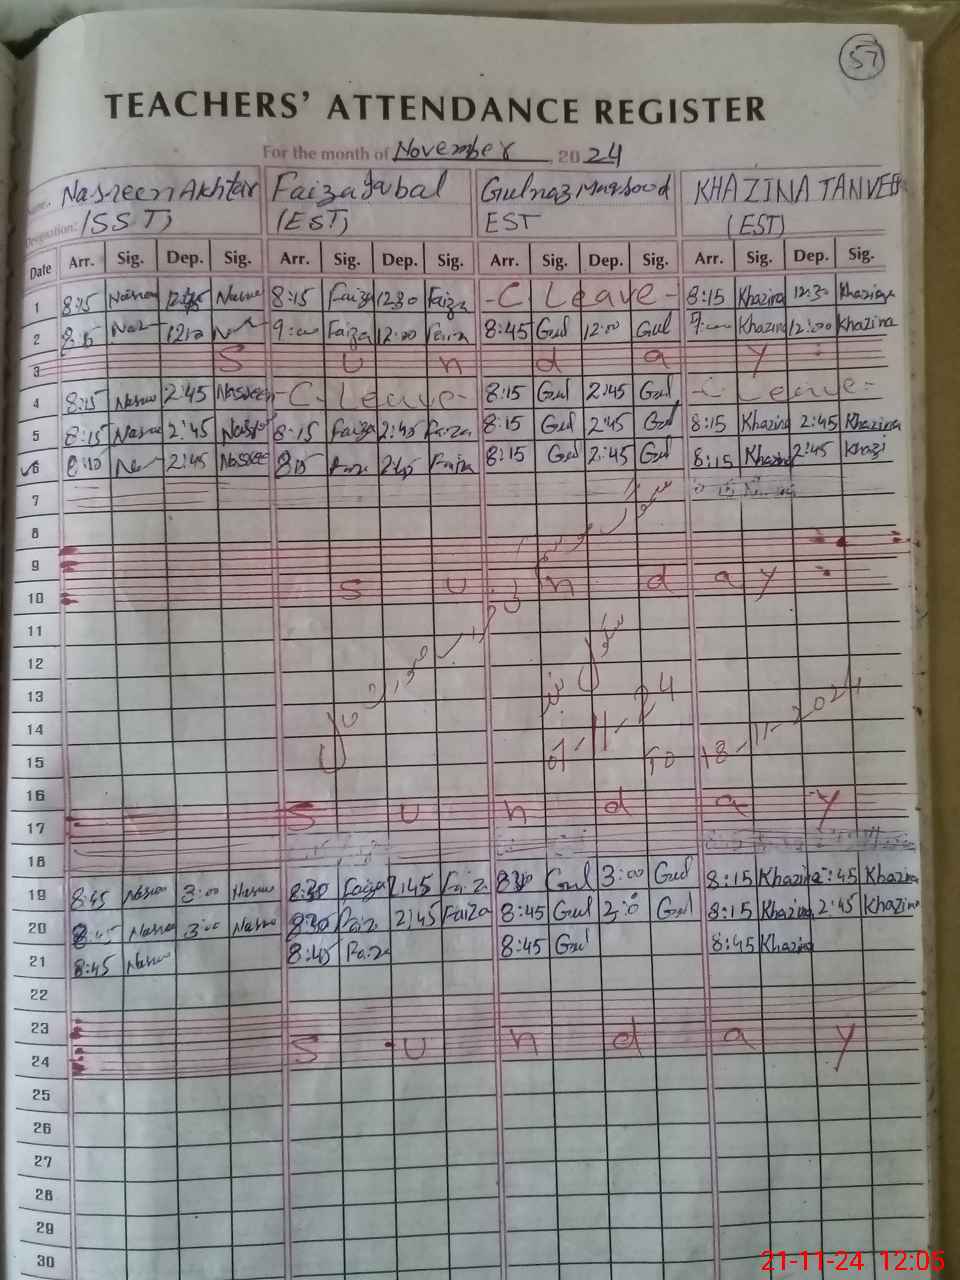 57
TEACHERS' ATTENDANCE REGISTER
For the month of November, 2024
Name: Nasreen Akhtar Faiza Iqbal Gulnaz Maqsood KHAZINA TANVEER
Designation: (SST) (EST) EST (EST)
Date Arr. Sig. Dep. Sig. Arr. Sig. Dep. Sig. Arr. Sig. Dep. Sig. Arr. Sig. Dep. Sig.
1 8:15 8:15 Faiza 12:30 Faiza -C. Leave- 8:15 Khazina 12:30 Khazina
2 8:15 9:00 Faiza 12:00 Faiza 8:45 Gul 12:00 Gul 9:00 Khazina 12:00 Khazina
3 Sunday
4 8:15 2:45 Nasreen -C. Leave- 8:15 Gul 2:45 Gul -C Leave-
5 8:15 2:45 8:15 Faiza 2:45 Faiza 8:15 Gul 2:45 Gul 8:15 Khazina 2:45 Khazina
6 8:15 2:45 Nasree 8:15 2:45 Faiza 8:15 Gul 2:45 Gul 8:15 Khazina 2:45 Khazi
7
8
9
10 Sunday
11
12
13
14
15 07-11-24 To 18-11-2024
16
17 Sunday
18
19 8:45 3:00 8:30 Faiza 2:45 Gul 3:00 Gul 8:15 Khazina :45 Khazina
20 8:45 3:00 8:30 Faiz 2:45 Faiza 8:45 Gul Gul 8:15 Khazina 2:45 Khazina
21 8:45 8:45 Faiza 8:45 Gul 8:45 Khazina
22
23
24 Sunday
25
26
27
28
29
30
21-11-24 12:05